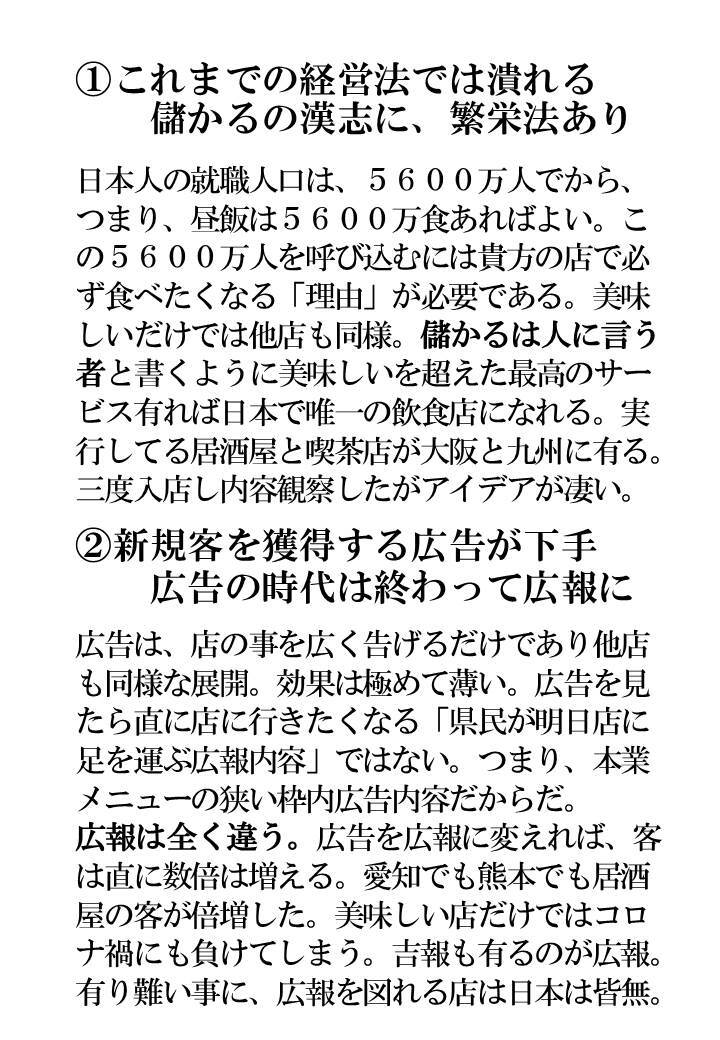 ①これまでの経営法では潰れる
儲かるの漢志に、繁栄法あり
日本人の就職人口は、５６００万人でから、
つまり、昼飯は５６００万食あればよい。こ
の５６００万人を呼び込むには貴方の店で必
ず食べたくなる「理由」が必要である。美味
しいだけでは他店も同様。儲かるは人に言う
者と書くように美味しいを超えた最高のサー
ビス有れば日本で唯一の飲食店になれる。実
行してる居酒屋と喫茶店が大阪と九州に有る。
三度入店し内容観察したがアイデアが凄い。
②新規客を獲得する広告が下手
広告の時代は終わって広報に
広告は、店の事を広く告げるだけであり他店
も同様な展開。効果は極めて薄い。広告を見
たら直に店に行きたくなる「県民が明日店に
足を運ぶ広報内容」ではない。つまり、本業
メニューの狭い枠内広告内容だからだ。
広報は全く違う。広告を広報に変えれば、客
は直に数倍は増える。愛知でも熊本でも居酒
屋の客が倍増した。美味しい店だけではコロ
ナ禍にも負けてしまう。吉報も有るのが広報。
有り難い事に、広報を図れる店は日本は皆無。